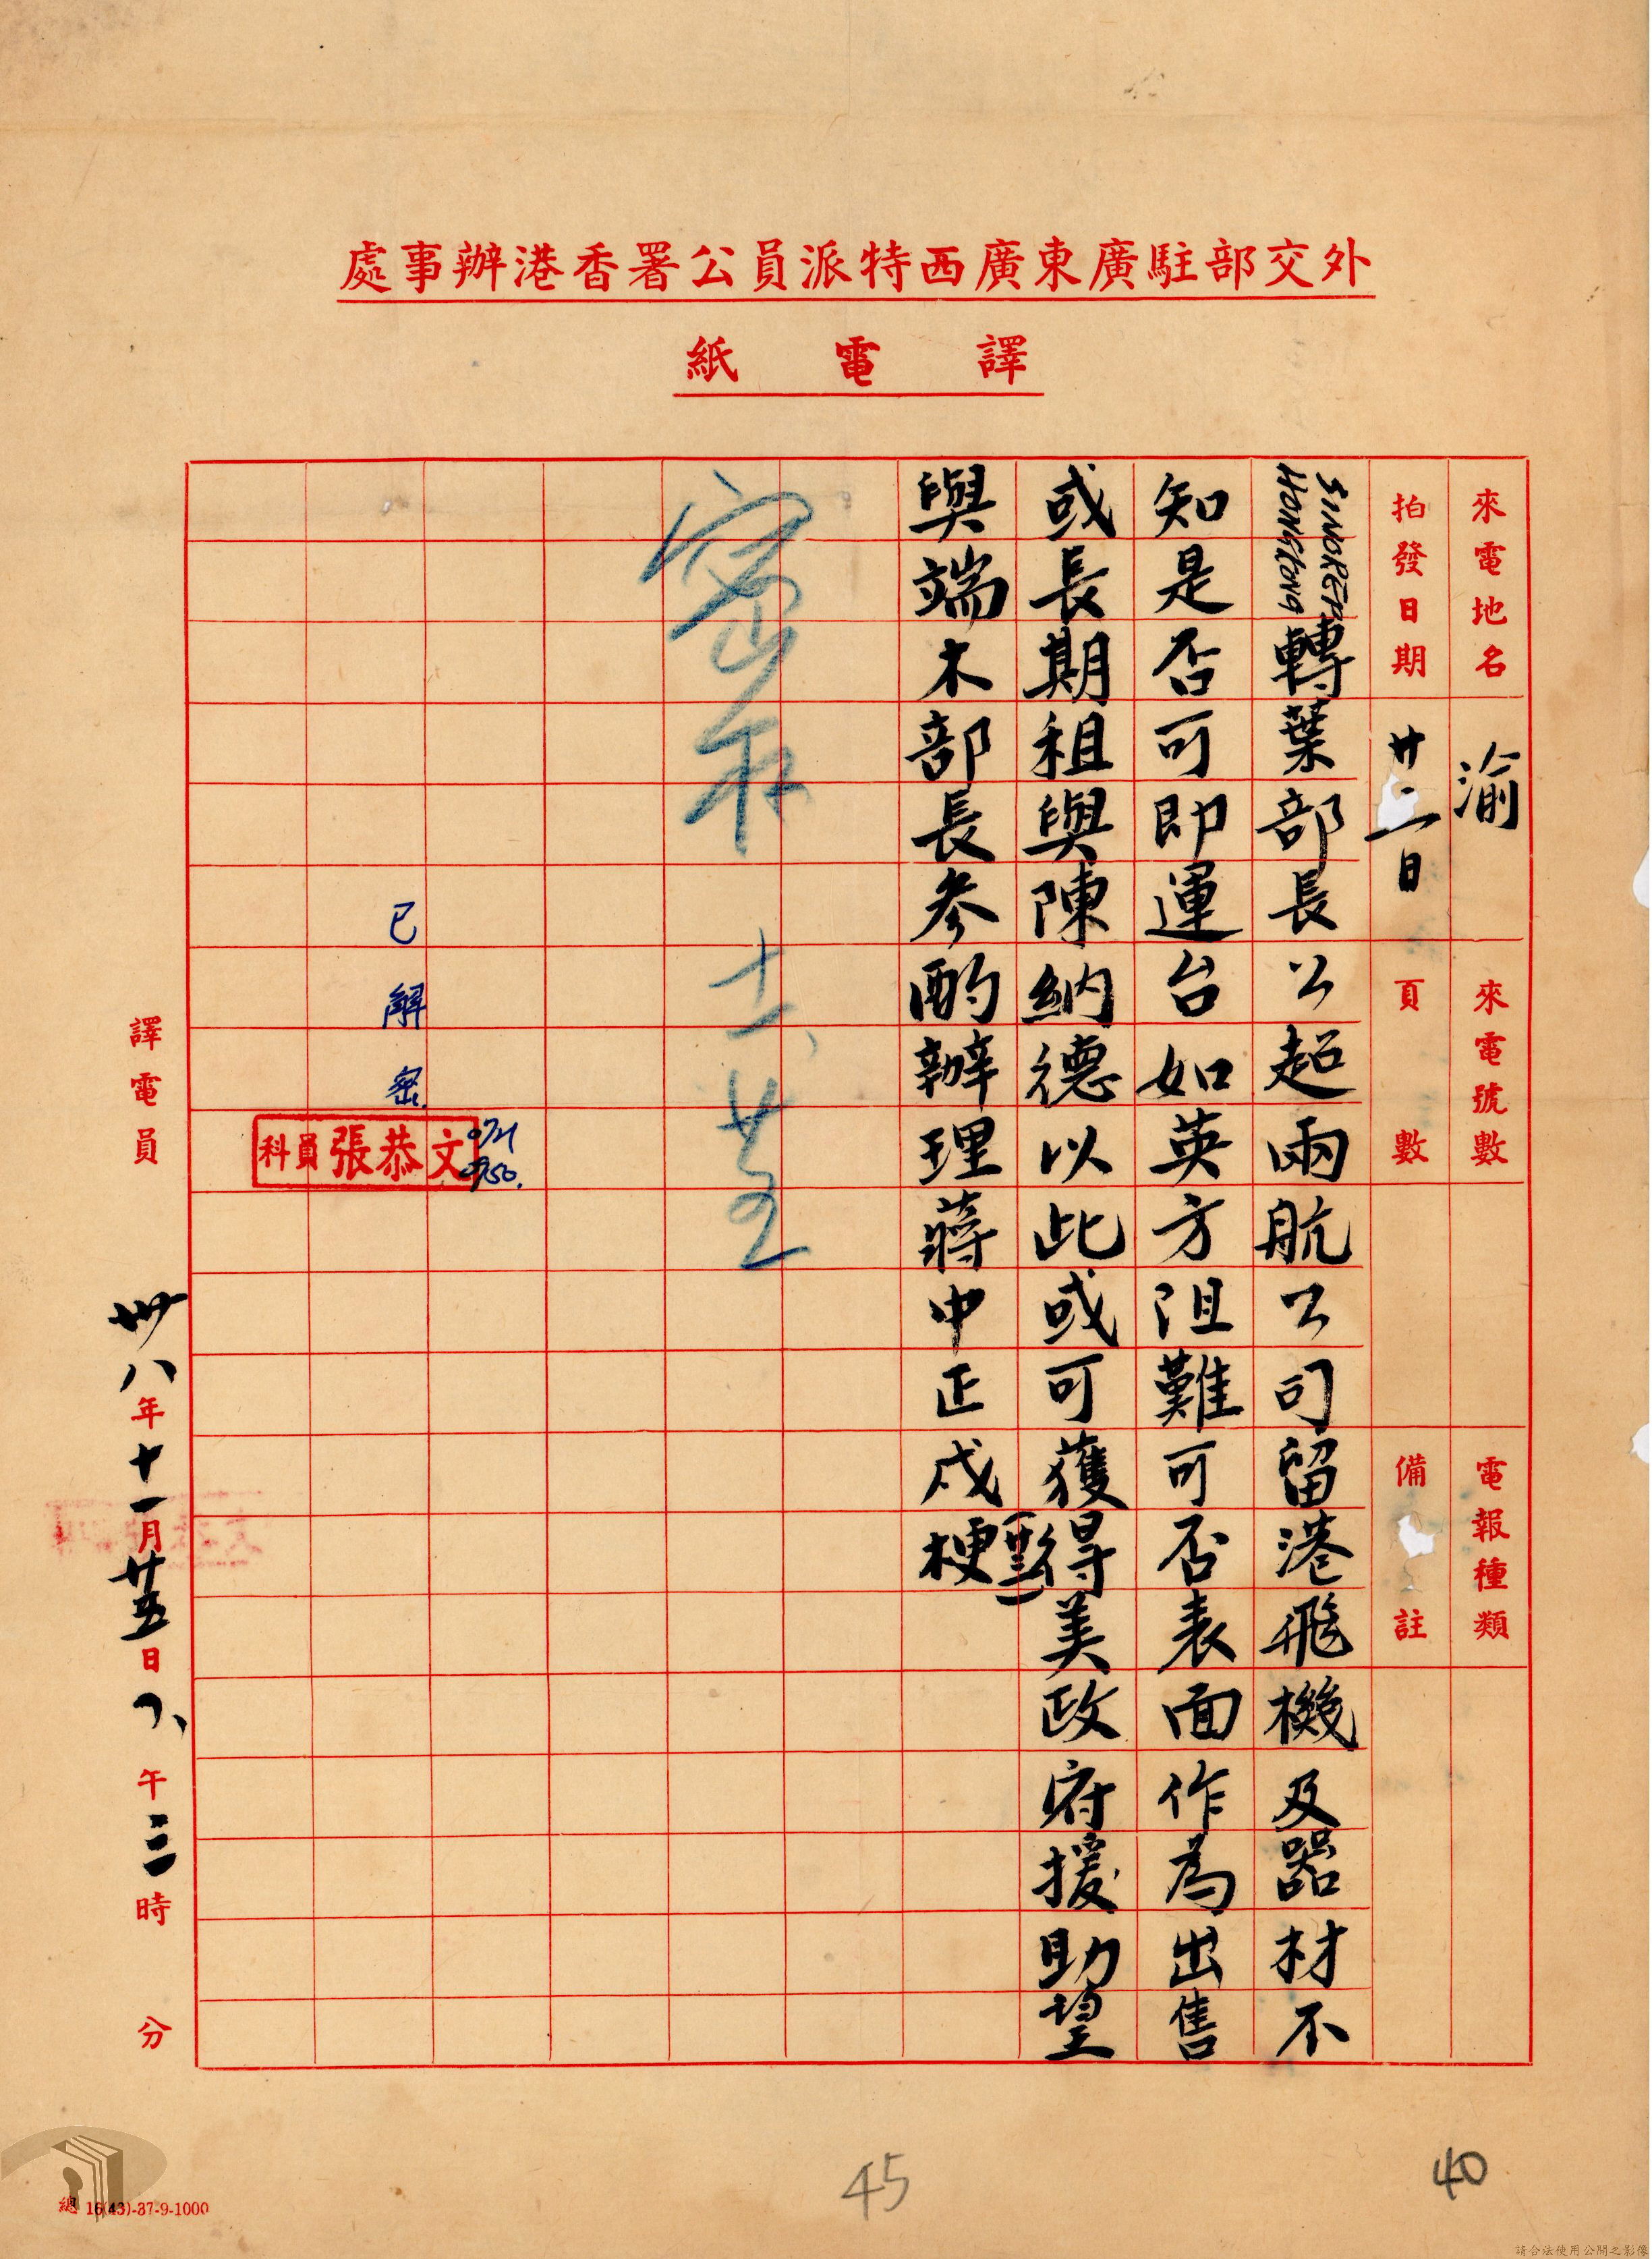 外交部駐廣東廣西特派員公署香港辦事處
譯電紙
來電地名 渝 來電號數 電報種類
拍發日期 日 頁數 備註
SINOREP HONGKONG 轉葉部長公超兩航公司留港飛機及器材不
知是否可即運台如英方阻難可否表面作為出售
或長期租與陳納德以此或可獲得美政府援助望
與端木部長參酌辦理蔣中正戌梗
密存 十一、廿五
已解密
科員 張恭文
譯電員
卅八年十一月廿五日下午三時 分
總 16(43)-37-9-1000
45
40
請合法使用公開之影像